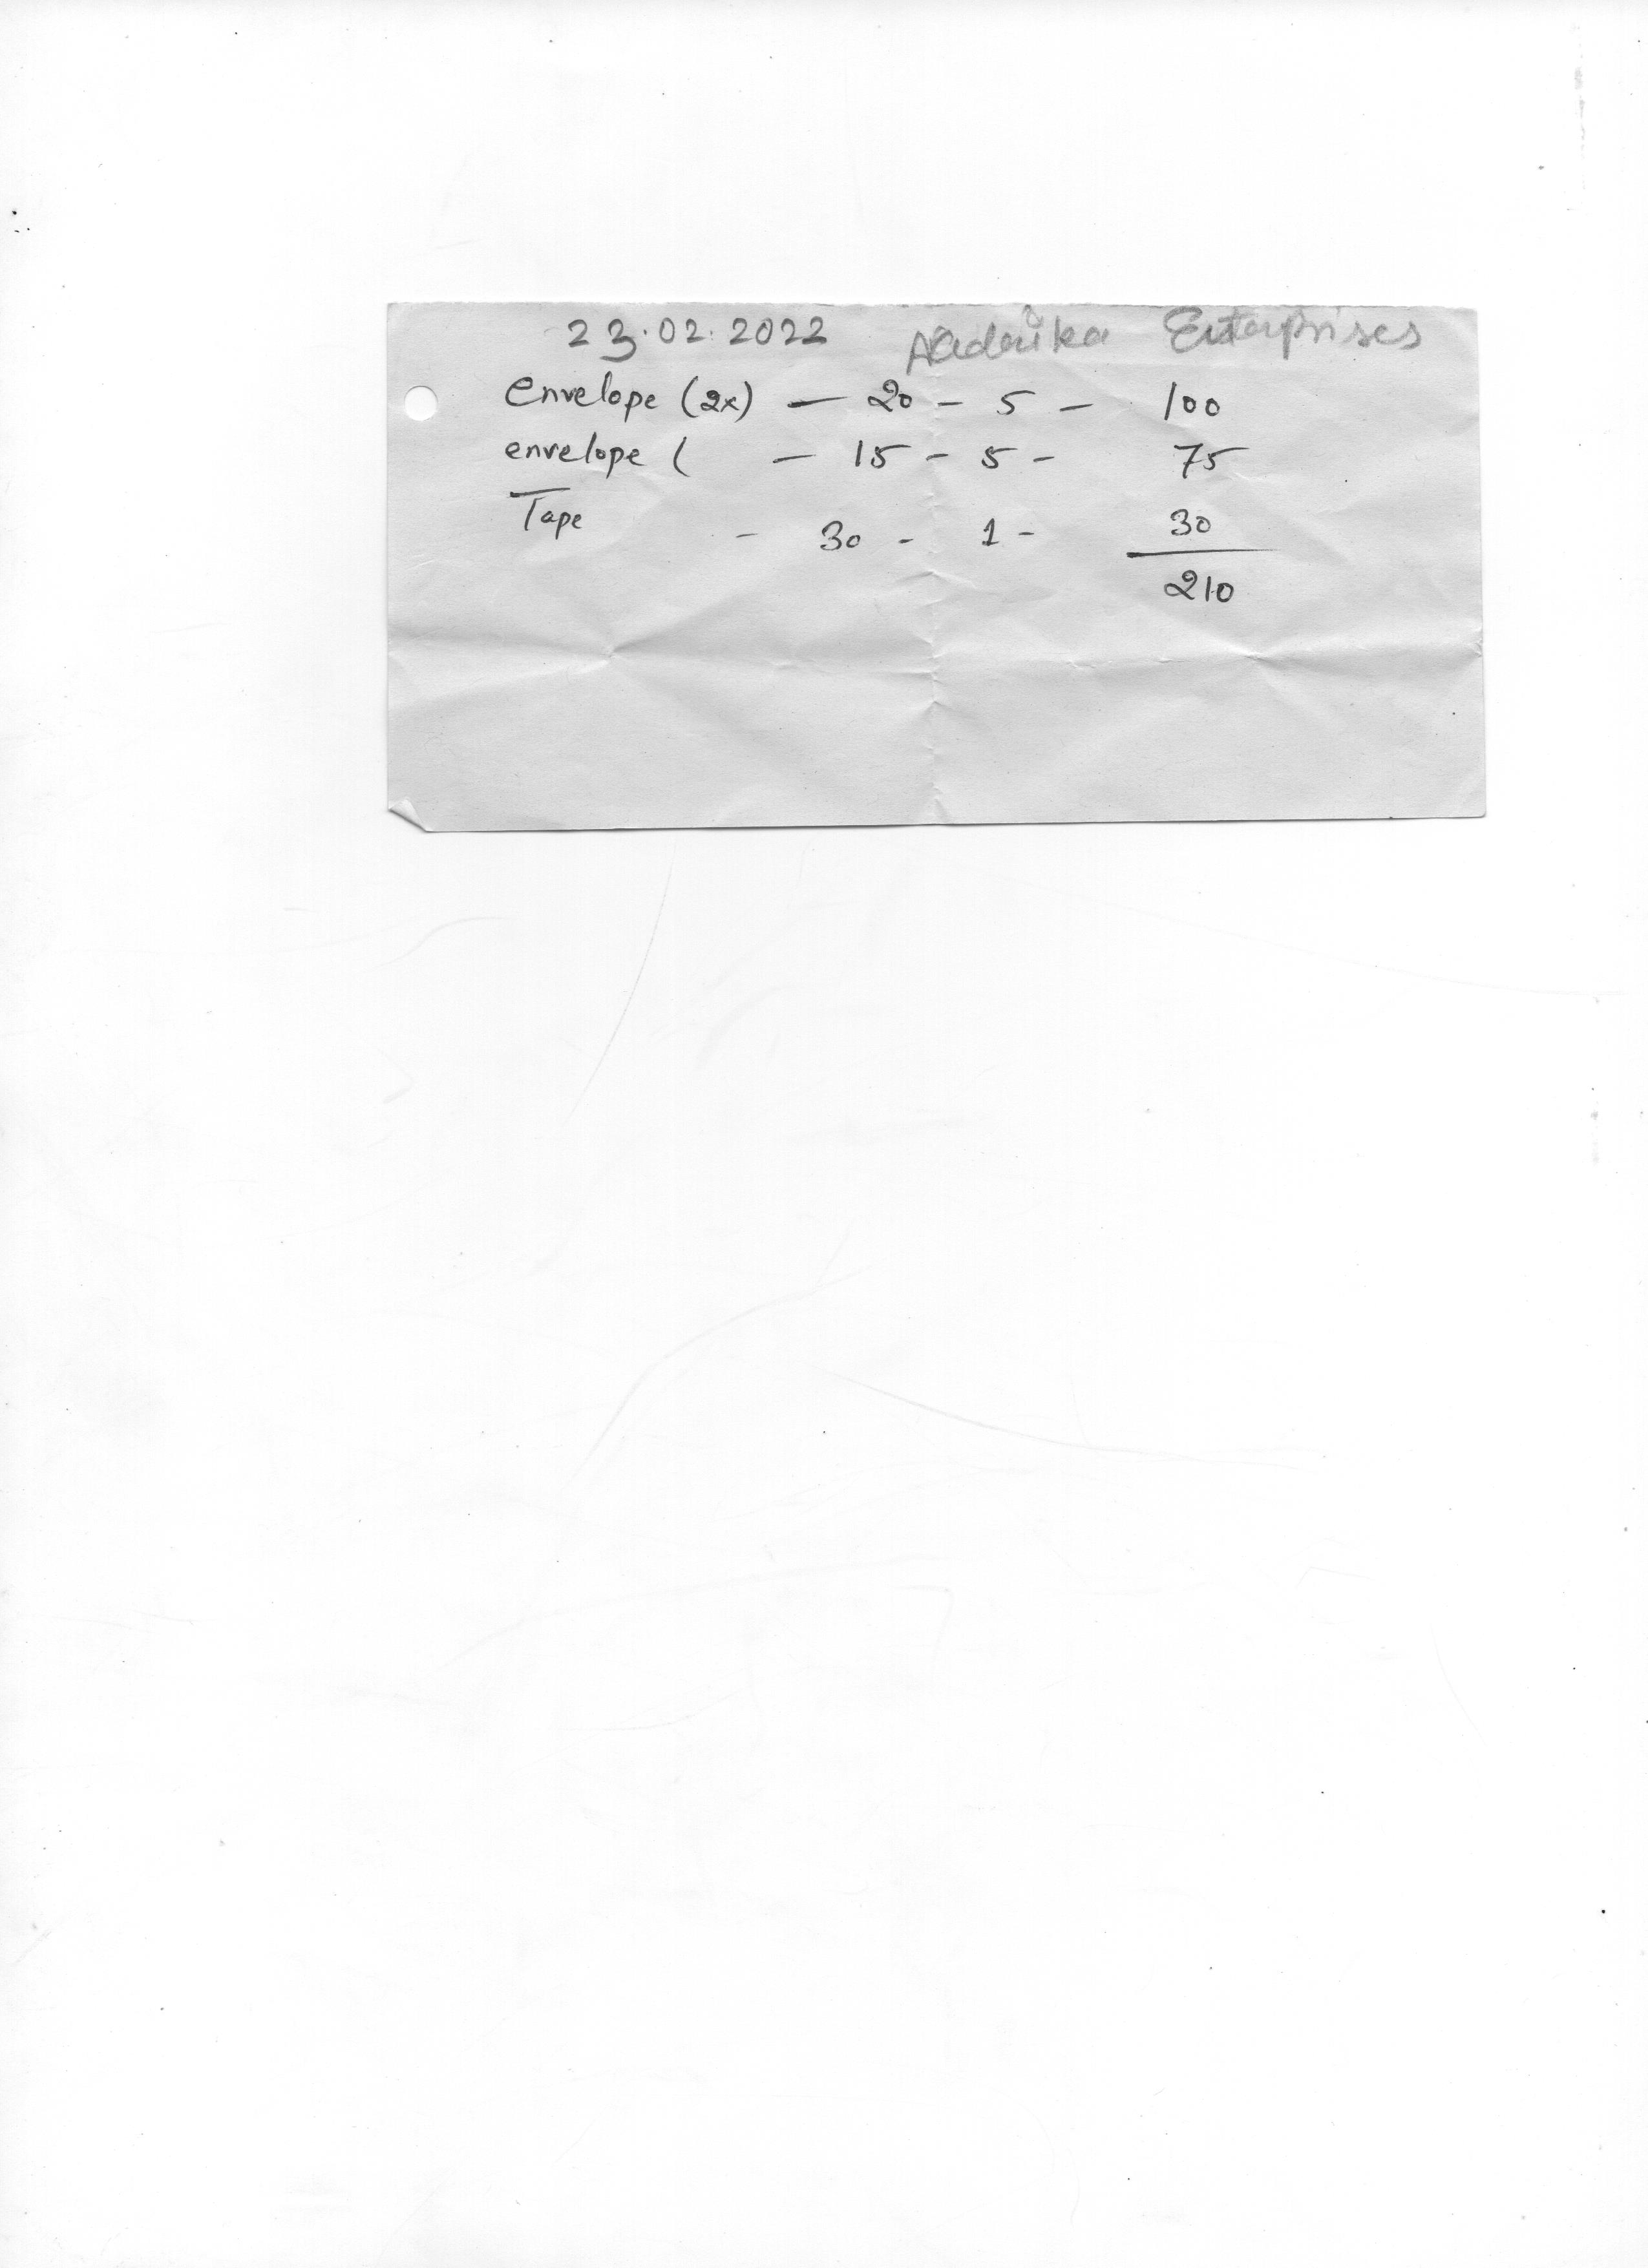 23.02.2022 Enterprises
envelope (2x) — 20 - 5 - 100
envelope ( - 15 - 5 - 75
Tape - 30 - 1 - 30
210